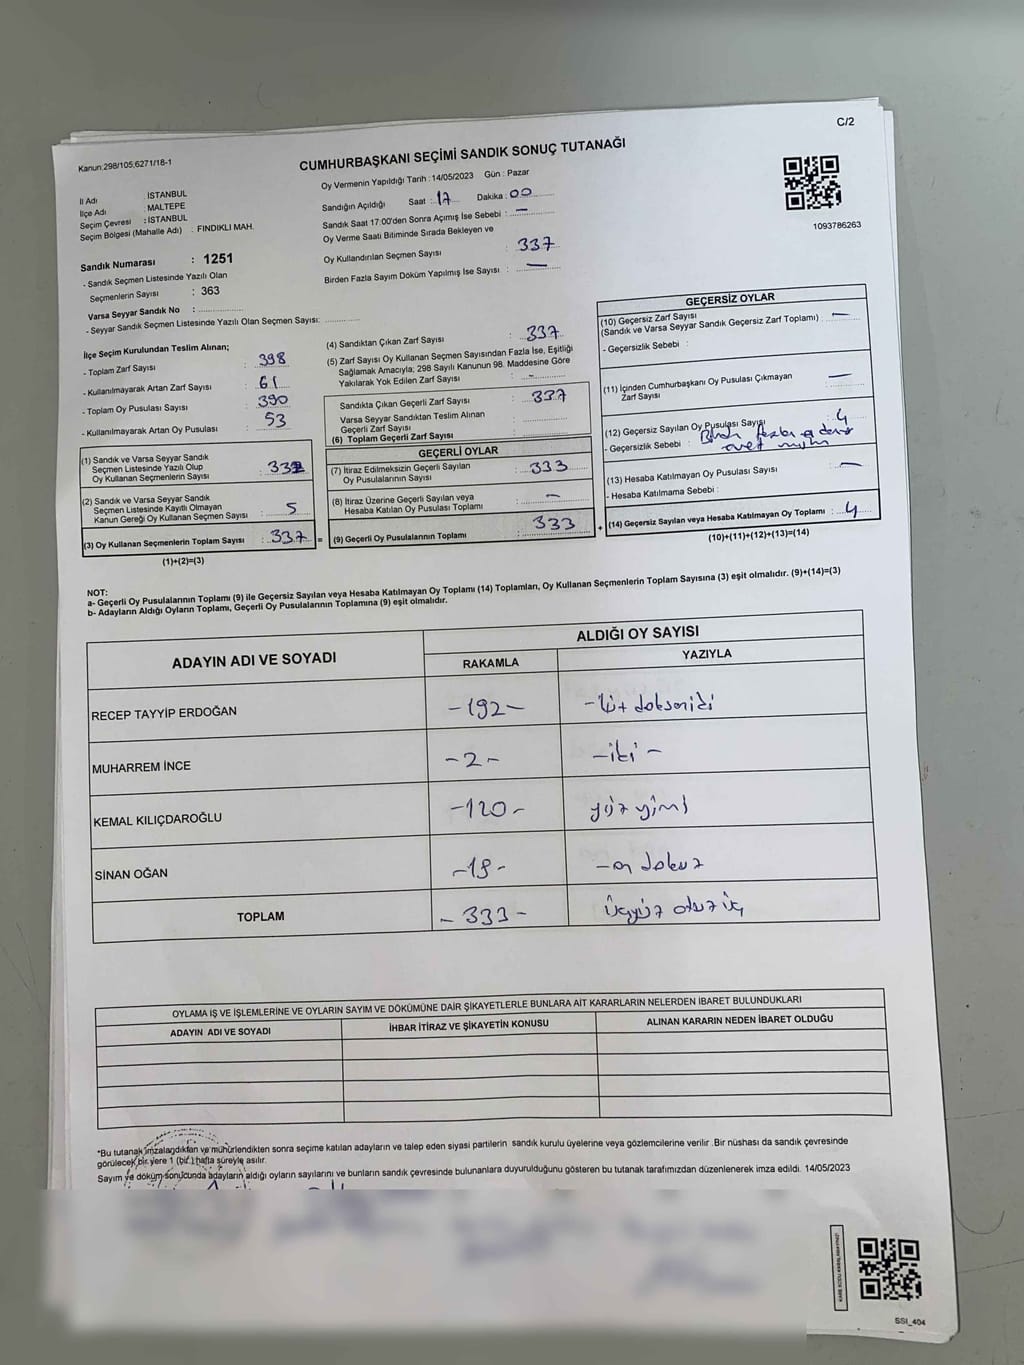 C/2
Kanun:298/105,6271/18-1
CUMHURBAŞKANI SEÇİMİ SANDIK SONUÇ TUTANAĞI
İl Adı : İSTANBUL
İlçe Adı : MALTEPE
Seçim Çevresi : İSTANBUL
Seçim Bölgesi (Mahalle Adı) : FINDIKLI MAH.
Oy Vermenin Yapıldığı Tarih : 14/05/2023 Gün : Pazar
Sandığın Açıldığı Saat : 17 Dakika : 00
Sandık Saat 17:00'den Sonra Açımış İse Sebebi : —
Oy Verme Saati Bitiminde Sırada Bekleyen ve
Oy Kullandırılan Seçmen Sayısı : 337
Birden Fazla Sayım Döküm Yapılmış İse Sayısı : —
1093786263
Sandık Numarası : 1251
- Sandık Seçmen Listesinde Yazılı Olan
Seçmenlerin Sayısı : 363
Varsa Seyyar Sandık No :
- Seyyar Sandık Seçmen Listesinde Yazılı Olan Seçmen Sayısı:
İlçe Seçim Kurulundan Teslim Alınan;
- Toplam Zarf Sayısı : 398
- Kullanılmayarak Artan Zarf Sayısı : 61
- Toplam Oy Pusulası Sayısı : 390
- Kullanılmayarak Artan Oy Pusulası : 53
(1) Sandık ve Varsa Seyyar Sandık
Seçmen Listesinde Yazılı Olup
Oy Kullanan Seçmenlerin Sayısı : 332
(2) Sandık ve Varsa Seyyar Sandık
Seçmen Listesinde Kayıtlı Olmayan
Kanun Gereği Oy Kullanan Seçmen Sayısı : 5
(3) Oy Kullanan Seçmenlerin Toplam Sayısı : 337 =
(1)+(2)=(3)
(4) Sandıktan Çıkan Zarf Sayısı : 337
(5) Zarf Sayısı Oy Kullanan Seçmen Sayısından Fazla İse, Eşitliği
Sağlamak Amacıyla; 298 Sayılı Kanunun 98. Maddesine Göre
Yakılarak Yok Edilen Zarf Sayısı : -
Sandıkta Çıkan Geçerli Zarf Sayısı : 337
Varsa Seyyar Sandıktan Teslim Alınan
Geçerli Zarf Sayısı :
(6) Toplam Geçerli Zarf Sayısı :
GEÇERLİ OYLAR
(7) İtiraz Edilmeksizin Geçerli Sayılan
Oy Pusulalarının Sayısı : 333
(8) İtiraz Üzerine Geçerli Sayılan veya
Hesaba Katılan Oy Pusulası Toplamı : —
(9) Geçerli Oy Pusulalarının Toplamı : 333 +
GEÇERSİZ OYLAR
(10) Geçersiz Zarf Sayısı
(Sandık ve Varsa Seyyar Sandık Geçersiz Zarf Toplamı) : —
- Geçersizlik Sebebi :
(11) İçinden Cumhurbaşkanı Oy Pusulası Çıkmayan
Zarf Sayısı : —
(12) Geçersiz Sayılan Oy Pusulası Sayısı : 4
- Geçersizlik Sebebi : fazla evet
(13) Hesaba Katılmayan Oy Pusulası Sayısı : —
- Hesaba Katılmama Sebebi :
(14) Geçersiz Sayılan veya Hesaba Katılmayan Oy Toplamı : 4
(10)+(11)+(12)+(13)=(14)
NOT:
a- Geçerli Oy Pusulalarının Toplamı (9) ile Geçersiz Sayılan veya Hesaba Katılmayan Oy Toplamı (14) Toplamları, Oy Kullanan Seçmenlerin Toplam Sayısına (3) eşit olmalıdır. (9)+(14)=(3)
b- Adayların Aldığı Oyların Toplamı, Geçerli Oy Pusulalarının Toplamına (9) eşit olmalıdır.
ADAYIN ADI VE SOYADI
ALDIĞI OY SAYISI
RAKAMLA YAZIYLA
RECEP TAYYİP ERDOĞAN -192- -yüz doksaniki
MUHARREM İNCE -2- -iki-
KEMAL KILIÇDAROĞLU -120- yüz yirmi
SİNAN OĞAN -19- -on dokuz
TOPLAM -333- üçyüz otuz üç
OYLAMA İŞ VE İŞLEMLERİNE VE OYLARIN SAYIM VE DÖKÜMÜNE DAİR ŞİKAYETLERLE BUNLARA AİT KARARLARIN NELERDEN İBARET BULUNDUKLARI
ADAYIN ADI VE SOYADI İHBAR İTİRAZ VE ŞİKAYETİN KONUSU ALINAN KARARIN NEDEN İBARET OLDUĞU
*Bu tutanak imzalandıktan ve mühürlendikten sonra seçime katılan adayların ve talep eden siyasi partilerin sandık kurulu üyelerine veya gözlemcilerine verilir. Bir nüshası da sandık çevresinde
görülecek bir yere 1 (bir) hafta süreyle asılır.
Sayım ve döküm sonucunda adayların aldığı oyların sayılarını ve bunların sandık çevresinde bulunanlara duyurulduğunu gösteren bu tutanak tarafımızdan düzenlenerek imza edildi. 14/05/2023
SSI_404